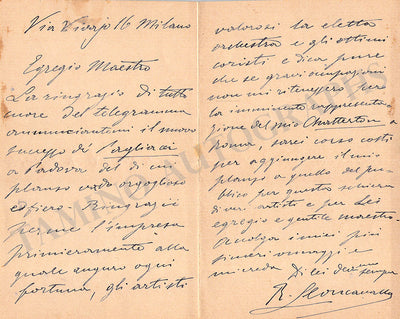 Via Vivajo 16 Milano
Egregio Maestro
La ringrazio di tutto
cuore del telegramma
annunciantemi il nuovo
successo dei Pagliacci
a Padova del di cui
plauso vado orgoglioso
e fiero. Ringrazi
per me l'impresa
primieramente alla
quale auguro ogni
fortuna, gli artisti
valorosi la eletta
orchestra e gli ottimi
coristi e dica pure
che se gravi occupazioni
non mi ritenessero per
la imminente rappresenta-
zione del mio Chatterton a
Roma, sarei corso costì
per aggiungere il mio
plauso a quello del pu-
blico per questa schiera
di veri artisti e per Lei
egregio e gentile maestro.
Accolga i miei più
sinceri omaggi e
mi creda di lei sempre
R. Leoncavallo
TAMINO AUTOGRAPHS